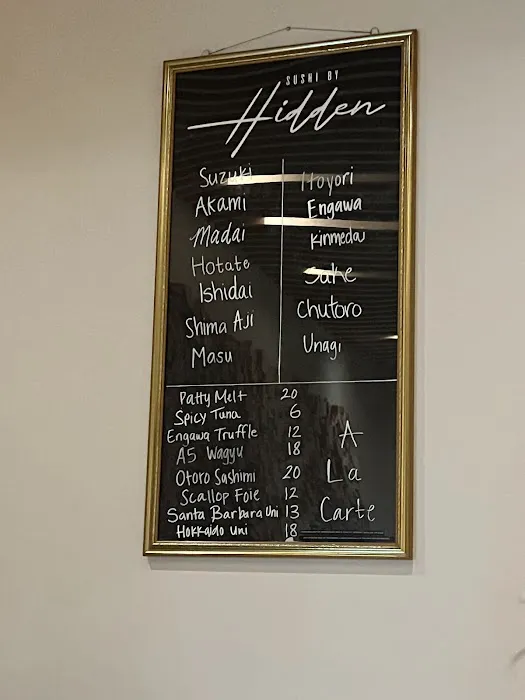 SUSHI BY
Hidden
Suzuki
Akami
Madai
Hotate
Ishidai
Shima Aji
Masu
Hoyori
Engawa
Kinmedai
Sake
Chutoro
Unagi
Patty Melt 20
Spicy Tuna 6
Engawa Truffle 12
A5 Wagyu 18
Otoro Sashimi 20
Scallop Foie 12
Santa Barbara Uni 13
Hokkaido Uni 18
A
La
Carte